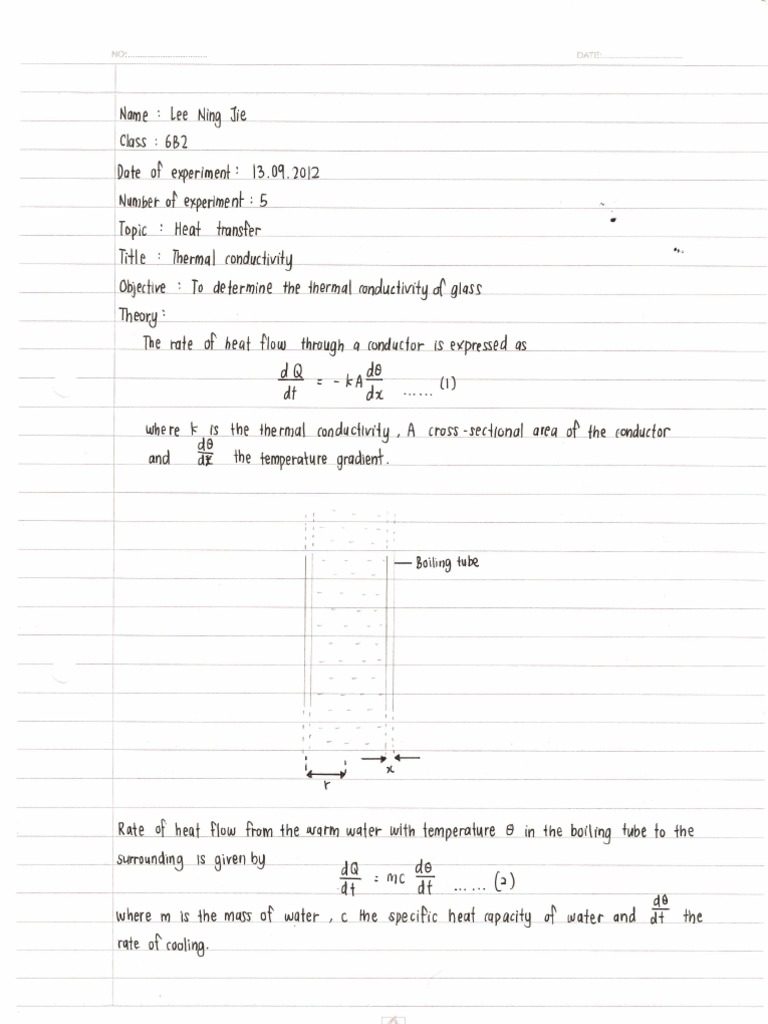 NO:
DATE:
Name : Lee Ning Jie
Class : 6B2
Date of experiment : 13.09.2012
Number of experiment : 5
Topic : Heat transfer
Title : Thermal conductivity
Objective : To determine the thermal conductivity of glass
Theory :
The rate of heat flow through a conductor is expressed as
dQ/dt = - kA dθ/dx ...... (1)
where k is the thermal conductivity , A cross-sectional area of the conductor
and dθ/dx the temperature gradient.
Boiling tube
x
r
Rate of heat flow from the warm water with temperature θ in the boiling tube to the
surrounding is given by
dQ/dt = mc dθ/dt ...... (2)
where m is the mass of water , c the specific heat capacity of water and dθ/dt the
rate of cooling.